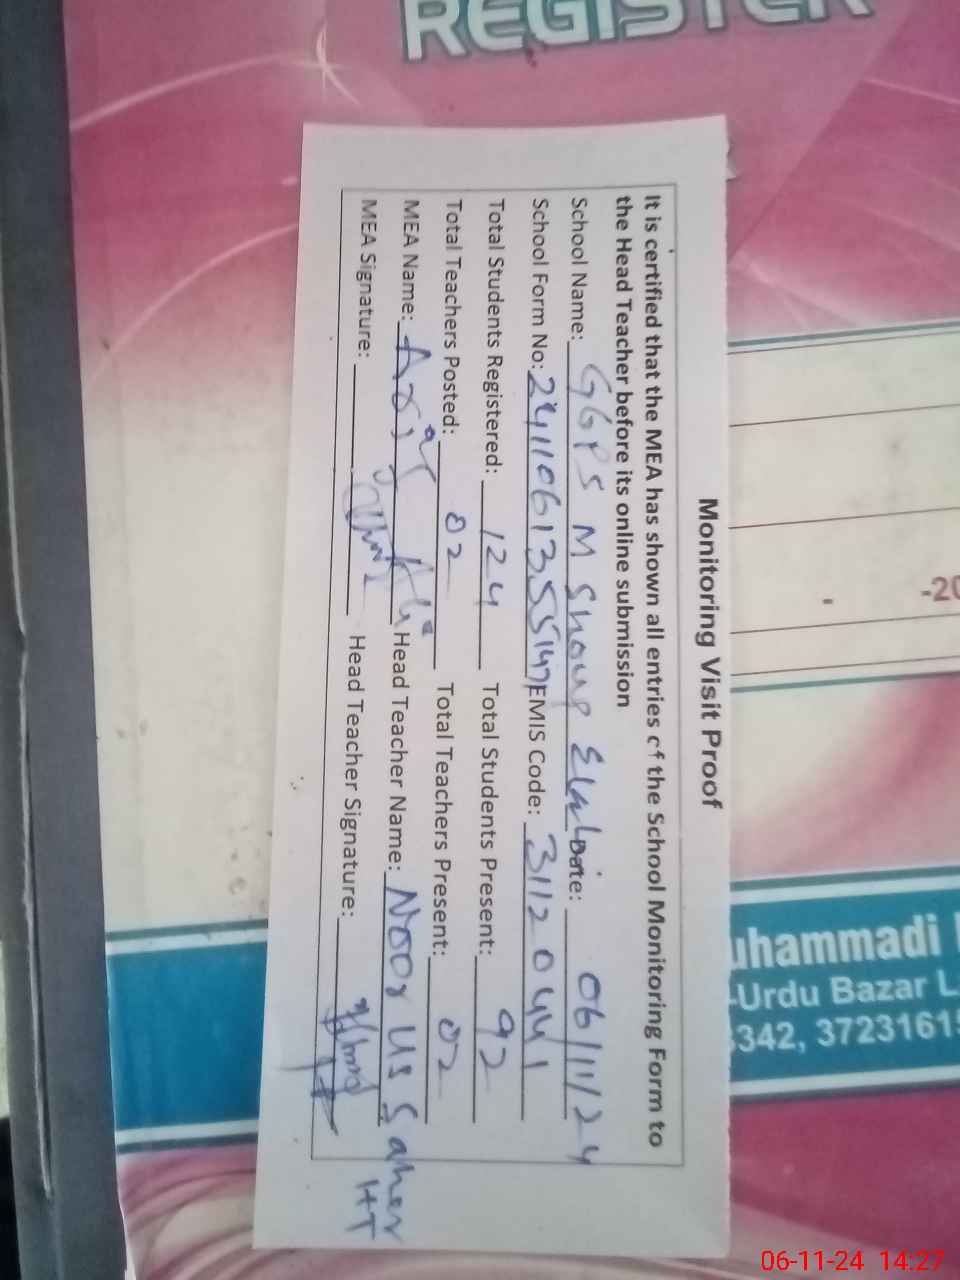 REGISTER
Monitoring Visit Proof
It is certified that the MEA has shown all entries of the School Monitoring Form to
the Head Teacher before its online submission
School Name: GGPS M Date: 06/11/24
School Form No: 241106135514 EMIS Code: 31120441
Total Students Registered: 124 Total Students Present: 92
Total Teachers Posted: 02 Total Teachers Present: 02
MEA Name: Head Teacher Name: Noor us Saher
HT
MEA Signature: Head Teacher Signature:
-20
uhammadi
-Urdu Bazar L
342, 3723161
06-11-24 14:27